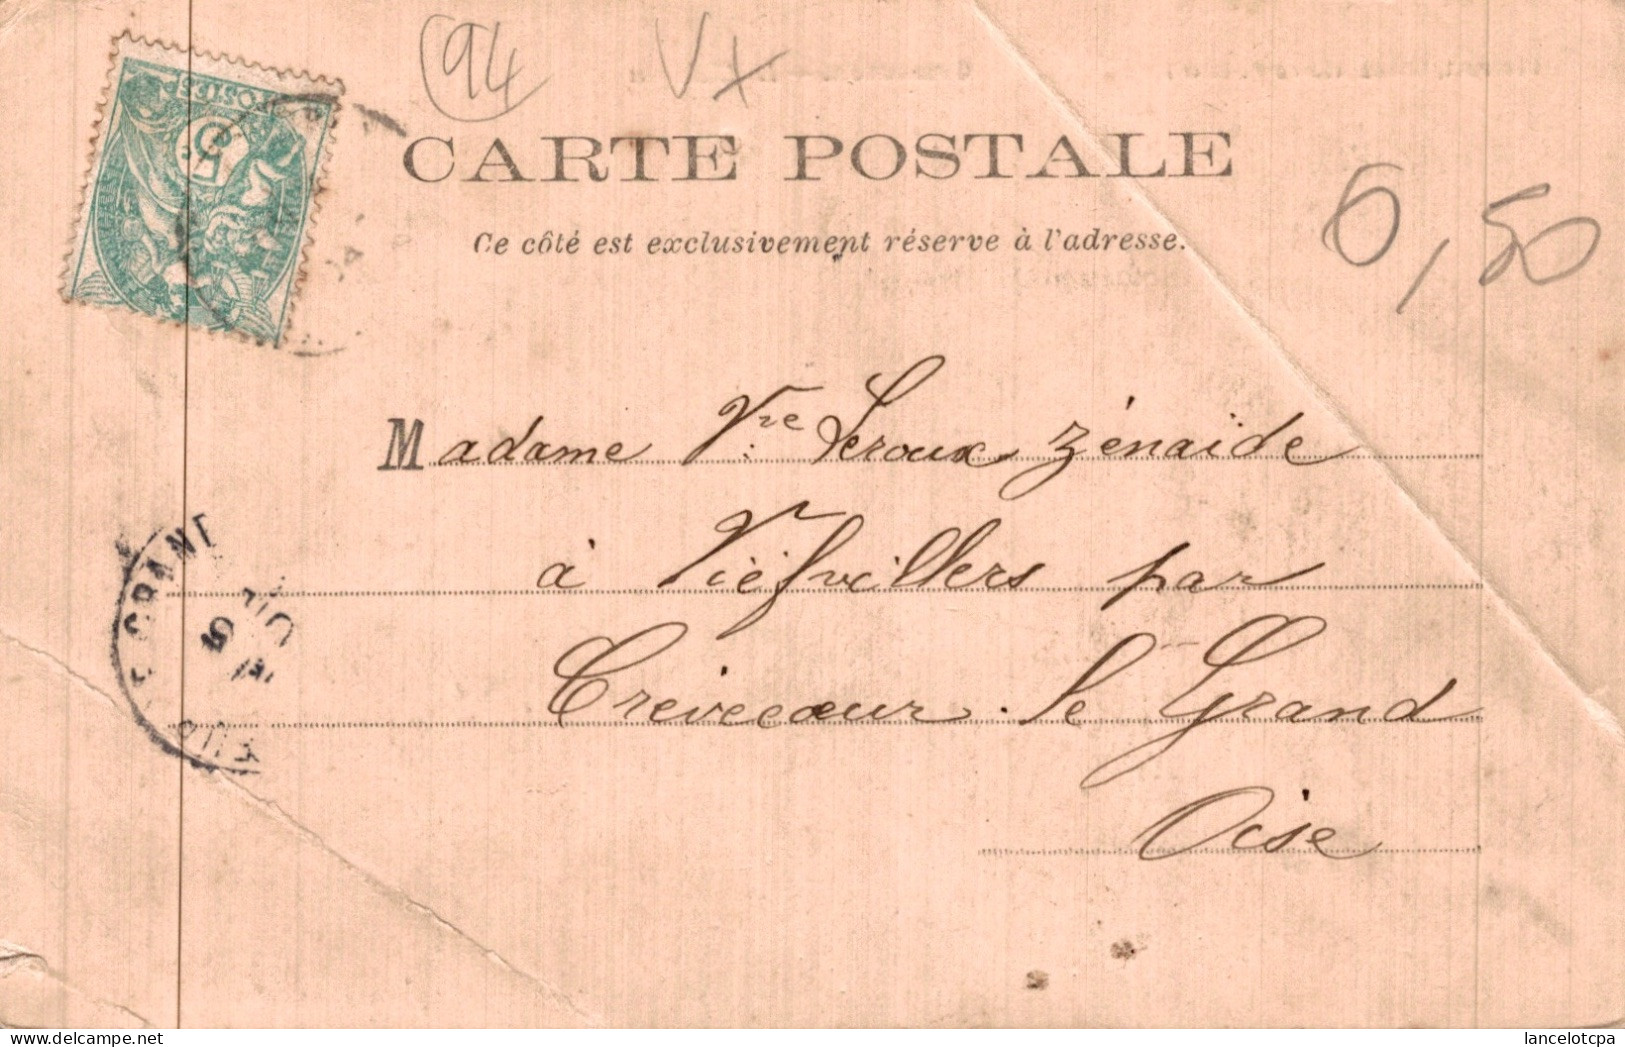 94 V +
CARTE POSTALE
Ce côté est exclusivement réservé à l'adresse.
6,50
Madame Vve Leroux Zénaide
à Viefvillers par
Crevecœur le Grand
Oise
GRAND
lancelotcpa